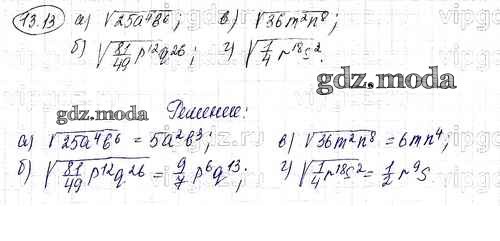 13.13 а) √25a⁴b⁶; в) √36m²n⁸;
б) √81/49 p¹²q²⁶; г) √1/4 r¹⁸s².
gdz.moda
gdz.moda Решение:
а) √25a⁴b⁶ = 5a²b³; в) √36m²n⁸ = 6mn⁴;
б) √81/49 p¹²q²⁶ = 9/7 p⁶q¹³; г) √1/4 r¹⁸s² = 1/2 r⁹s.